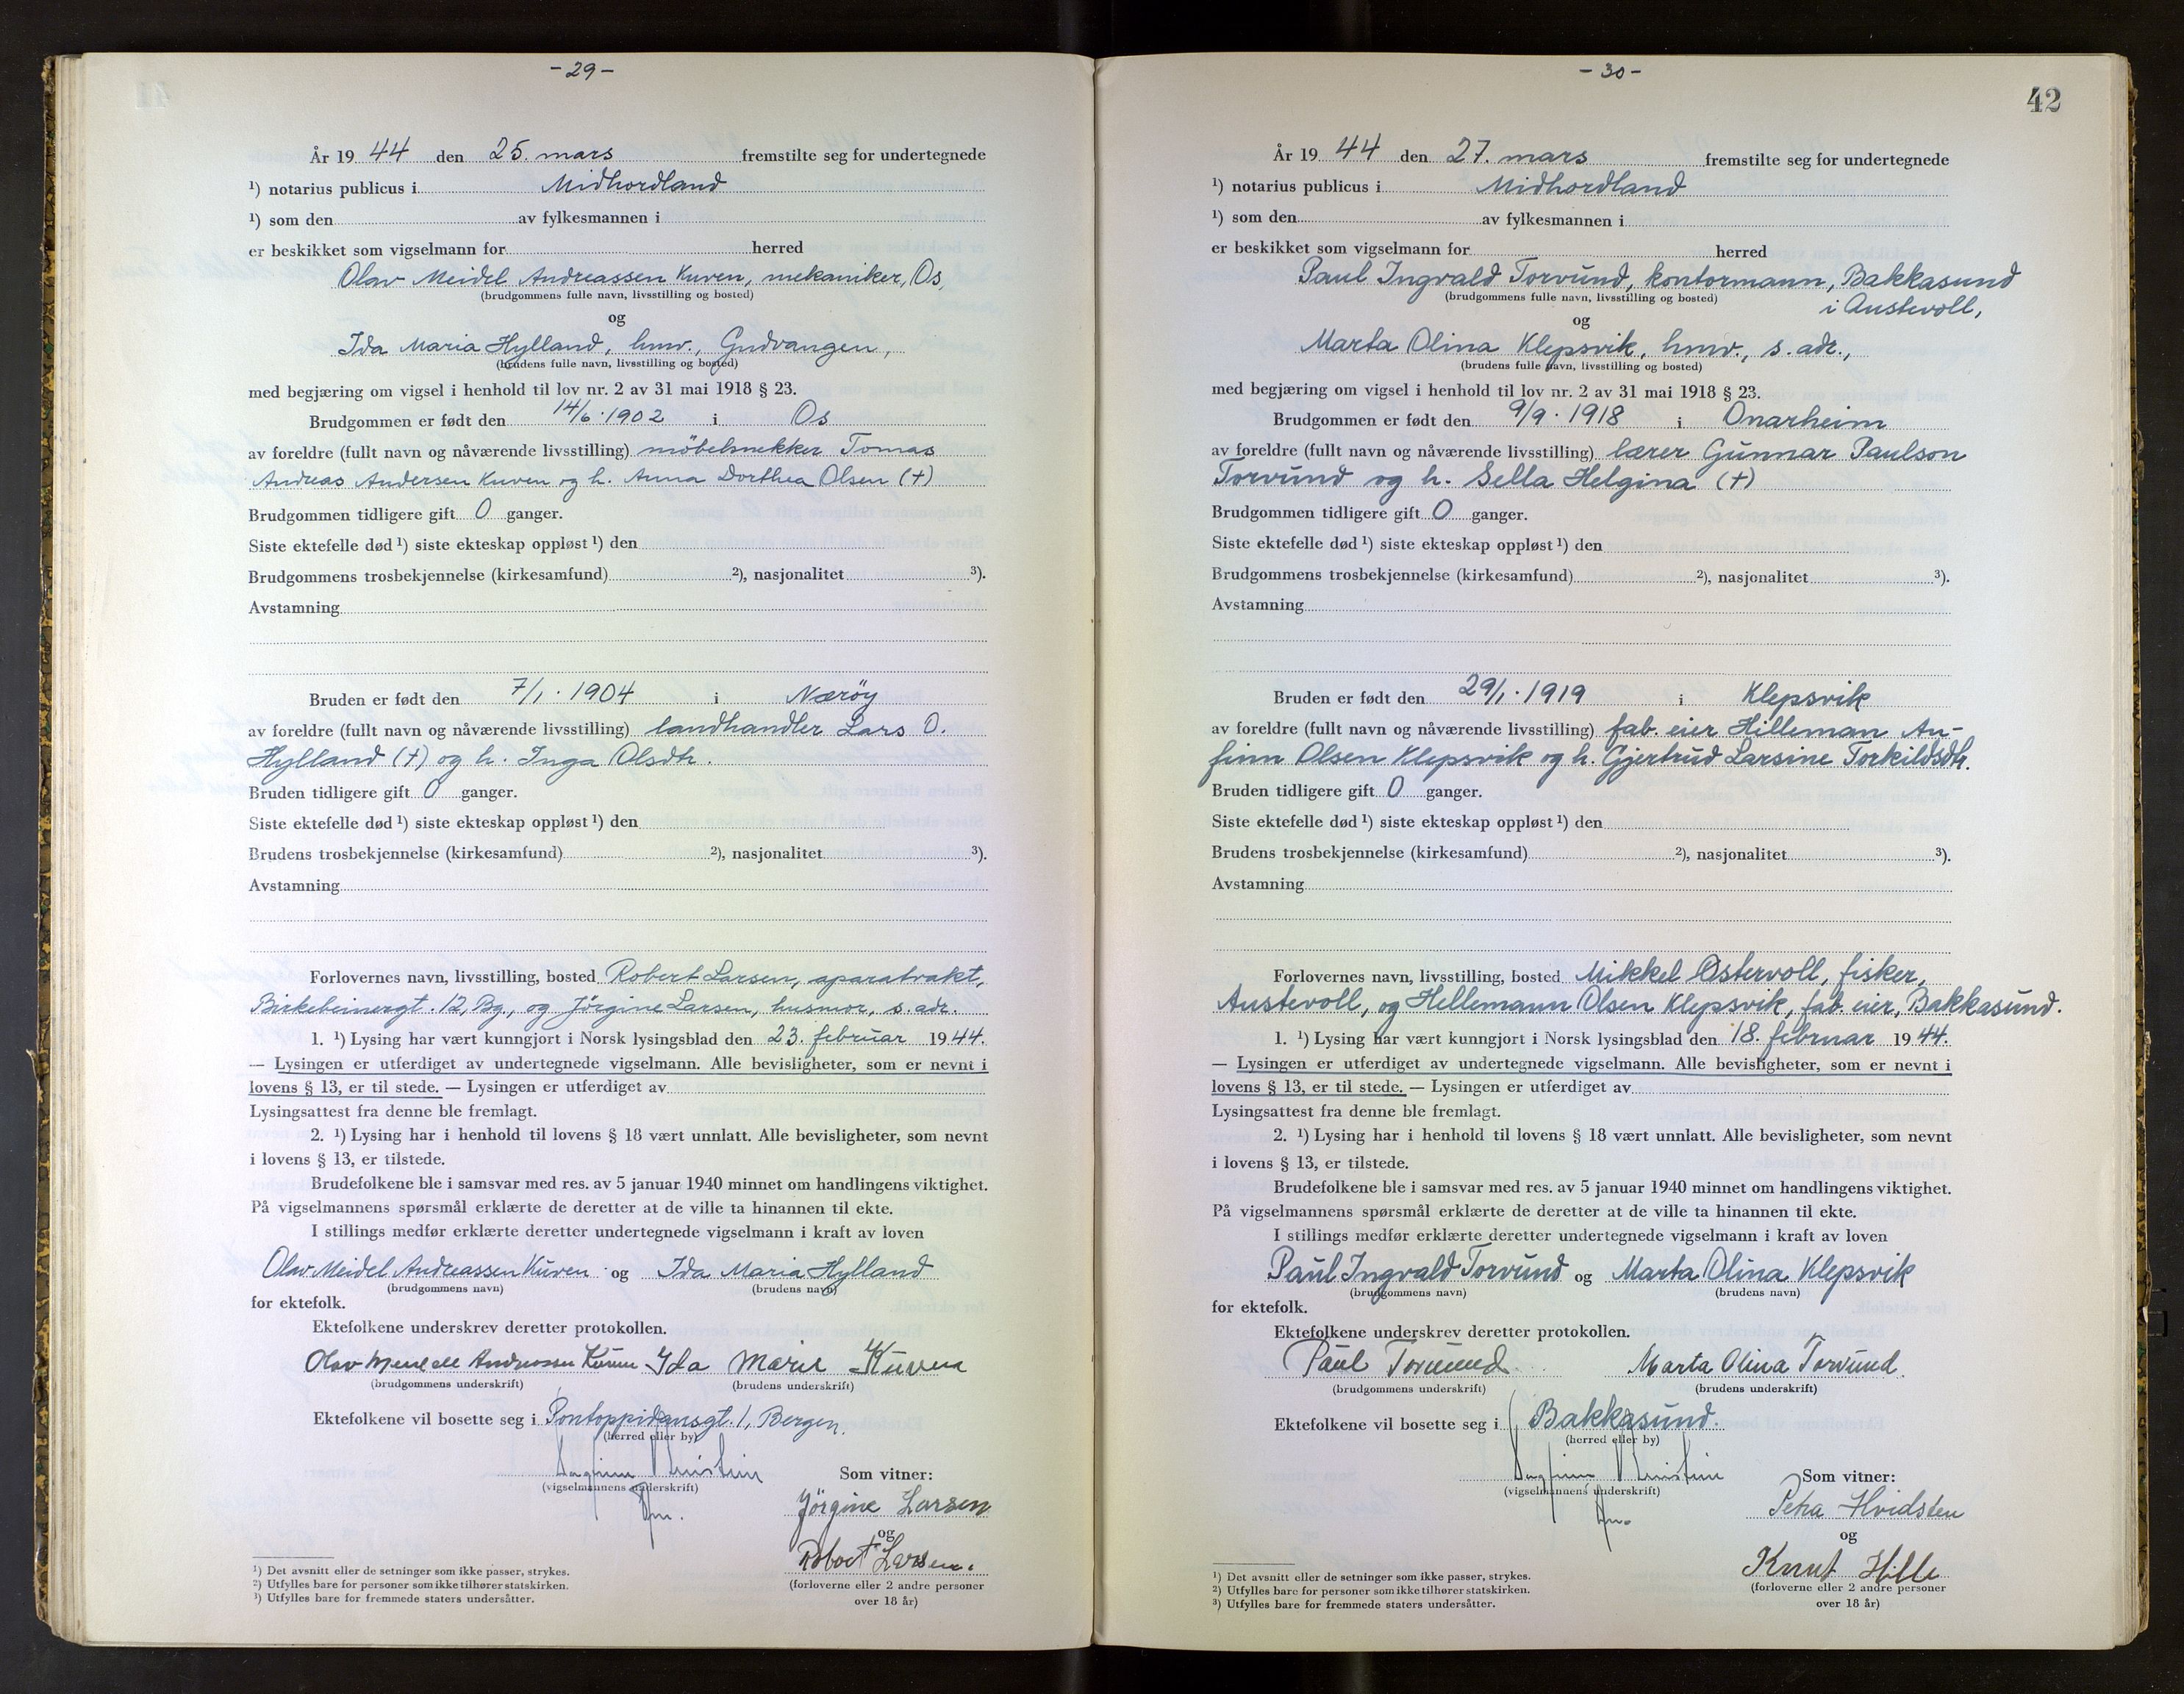 - 29 -
År 19 44 den 25. mars fremstilte seg for undertegnede
¹) notarius publicus i Midhordland
¹) som den av fylkesmannen i
er beskikket som vigselmann for herred
Olav Meidel Andreassen Kuven, mekaniker, Os,
(brudgommens fulle navn, livsstilling og bosted)
og
Ida Maria Hylland, hmv., Gudvangen,
(brudens fulle navn, livsstilling og bosted)
med begjæring om vigsel i henhold til lov nr. 2 av 31 mai 1918 § 23.
Brudgommen er født den 14/6. 1902 i Os
av foreldre (fullt navn og nåværende livsstilling) möbelsnekker Tomas
Andreas Andersen Kuven og h. Anna Dorthea Olsen (+)
Brudgommen tidligere gift 0 ganger.
Siste ektefelle død ¹) siste ekteskap oppløst ¹) den
Brudgommens trosbekjennelse (kirkesamfund) ²), nasjonalitet ³).
Avstamning
Bruden er født den 7/1. 1904 i Næröy
av foreldre (fullt navn og nåværende livsstilling) landhandler Lars O.
Hylland (+) og h. Inga Olsdtr.
Bruden tidligere gift 0 ganger.
Siste ektefelle død ¹) siste ekteskap oppløst ¹) den
Brudens trosbekjennelse (kirkesamfund) ²), nasjonalitet ³).
Avstamning
Forlovernes navn, livsstilling, bosted Robert Larsen, aparatvakt,
Birkebeinergt. 12, Bg., og Jörgine Larsen, husmor, s. adr.
1. ¹) Lysing har vært kunngjort i Norsk lysingsblad den 23. februar 1944.
— Lysingen er utferdiget av undertegnede vigselmann. Alle bevisligheter, som er nevnt i
lovens § 13, er til stede. — Lysingen er utferdiget av
Lysingsattest fra denne ble fremlagt.
2. ¹) Lysing har i henhold til lovens § 18 vært unnlatt. Alle bevisligheter, som nevnt
i lovens § 13, er tilstede.
Brudefolkene ble i samsvar med res. av 5 januar 1940 minnet om handlingens viktighet.
På vigselmannens spørsmål erklærte de deretter at de ville ta hinannen til ekte.
I stillings medfør erklærte deretter undertegnede vigselmann i kraft av loven
Olav Meidel Andreassen Kuven og Ida Maria Hylland
(brudgommens navn) (brudens navn)
for ektefolk.
Ektefolkene underskrev deretter protokollen.
Olav Andreassen Kuven Ida Marie Kuven
(brudgommens underskrift) (brudens underskrift)
Ektefolkene vil bosette seg i Pontoppidansgt. 1, Bergen.
(herred eller by)
(vigselmannens underskrift)
Som vitner:
Jörgine Larsen
og
Robert Larsen.
(forloverne eller 2 andre personer
over 18 år)
¹) Det avsnitt eller de setninger som ikke passer, strykes.
²) Utfylles bare for personer som ikke tilhører statskirken.
³) Utfylles bare for fremmede staters undersåtter.
- 30 -
42
År 19 44 den 27. mars fremstilte seg for undertegnede
¹) notarius publicus i Midhordland
¹) som den av fylkesmannen i
er beskikket som vigselmann for herred
Paul Ingvald Torvund, kontormann, Bakkasund
(brudgommens fulle navn, livsstilling og bosted) i Austevoll,
og
Marta Olina Klepsvik, hmv., s. adr.,
(brudens fulle navn, livsstilling og bosted)
med begjæring om vigsel i henhold til lov nr. 2 av 31 mai 1918 § 23.
Brudgommen er født den 9/9. 1918 i Onarheim
av foreldre (fullt navn og nåværende livsstilling) lærer Gunnar Paulson
Torvund og h. Sella Helgina (+)
Brudgommen tidligere gift 0 ganger.
Siste ektefelle død ¹) siste ekteskap oppløst ¹) den
Brudgommens trosbekjennelse (kirkesamfund) ²), nasjonalitet ³).
Avstamning
Bruden er født den 29/1. 1919 i Klepsvik
av foreldre (fullt navn og nåværende livsstilling) fab. eier Hilleman An-
finn Olsen Klepsvik og h. Gjertrud Larsine Torkildsdtr.
Bruden tidligere gift 0 ganger.
Siste ektefelle død ¹) siste ekteskap oppløst ¹) den
Brudens trosbekjennelse (kirkesamfund) ²), nasjonalitet ³).
Avstamning
Forlovernes navn, livsstilling, bosted Mikkel Østervoll, fisker,
Austevoll, og Hellemann Olsen Klepsvik, fab. eier, Bakkasund.
1. ¹) Lysing har vært kunngjort i Norsk lysingsblad den 18. februar 1944.
— Lysingen er utferdiget av undertegnede vigselmann. Alle bevisligheter, som er nevnt i
lovens § 13, er til stede. — Lysingen er utferdiget av
Lysingsattest fra denne ble fremlagt.
2. ¹) Lysing har i henhold til lovens § 18 vært unnlatt. Alle bevisligheter, som nevnt
i lovens § 13, er tilstede.
Brudefolkene ble i samsvar med res. av 5 januar 1940 minnet om handlingens viktighet.
På vigselmannens spørsmål erklærte de deretter at de ville ta hinannen til ekte.
I stillings medfør erklærte deretter undertegnede vigselmann i kraft av loven
Paul Ingvald Torvund og Marta Olina Klepsvik
(brudgommens navn) (brudens navn)
for ektefolk.
Ektefolkene underskrev deretter protokollen.
Paul Torvund Marta Olina Torvund.
(brudgommens underskrift) (brudens underskrift)
Ektefolkene vil bosette seg i Bakkasund.
(herred eller by)
(vigselmannens underskrift)
Som vitner:
Petra Hvidsten
og
Knut Hille
(forloverne eller 2 andre personer
over 18 år)
¹) Det avsnitt eller de setninger som ikke passer, strykes.
²) Utfylles bare for personer som ikke tilhører statskirken.
³) Utfylles bare for fremmede staters undersåtter.